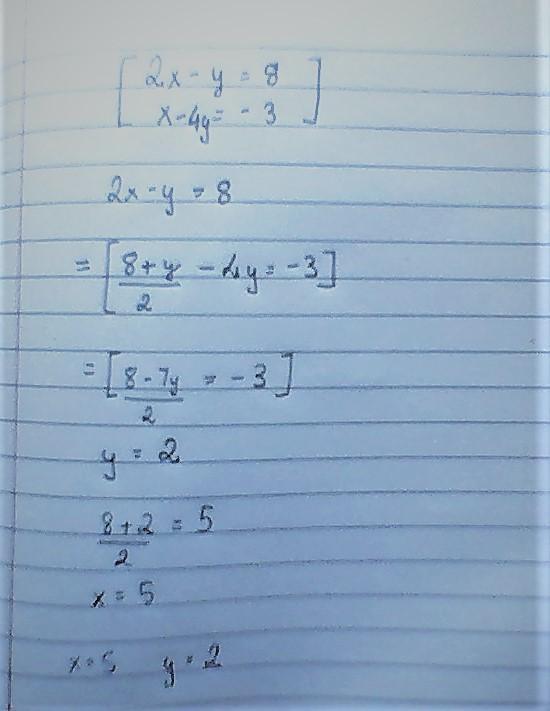 [ 2x - y = 8
x - 4y = - 3 ]
2x - y = 8
= [ 8 + y / 2 - 4y = -3 ]
= [ 8 - 7y / 2 = - 3 ]
y = 2
8 + 2 / 2 = 5
x = 5
x = 5 y = 2